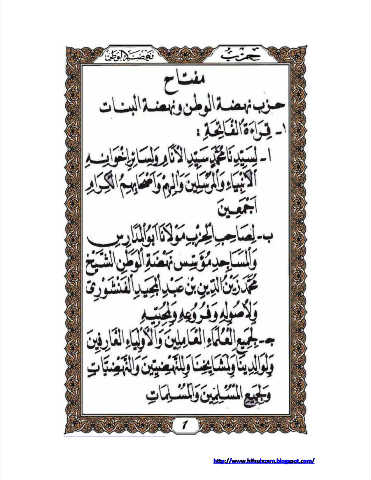 حزب
نهضة الوطن
مفتاح
حزب نهضة الوطن ونهضة البنات
١- قراءة الفاتحة :
ا- لِسَيِّدِنَا مُحَمَّدٍ سَيِّدِ الْأَنَامِ وَلِسَائِرِ إِخْوَانِهِ
الْأَنْبِيَاءِ وَالْمُرْسَلِينَ وَآلِهِمْ وَأَصْحَابِهِمُ الْكِرَامِ
أَجْمَعِينَ
ب- لِصَاحِبِ الْحِزْبِ مَوْلَانَا أَبُو الْمَدَارِسِ
وَالْمَسَاجِدِ مُؤَسِّسِ نَهْضَةِ الْوَطَنِ الشَّيْخِ
مُحَمَّد زَيْنِ الدِّينِ بْنِ عَبْدِ الْمَجِيدِ الْفَنْشُورِيّ
وَلِأُصُولِهِ وَفُرُوعِهِ وَمُحِبِّيهِ
ج- لِجَمِيعِ الْعُلَمَاءِ الْعَامِلِينَ وَالْأَوْلِيَاءِ الْعَارِفِينَ
وَلِوَالِدِينَا وَلِمَشَايِخِنَا وَلِلنَّهْضِيِّينَ وَالنَّهْضِيَّاتِ
وَلِجَمِيعِ الْمُسْلِمِينَ وَالْمُسْلِمَاتِ
١
http://www.hthulzam.blogspot.com/